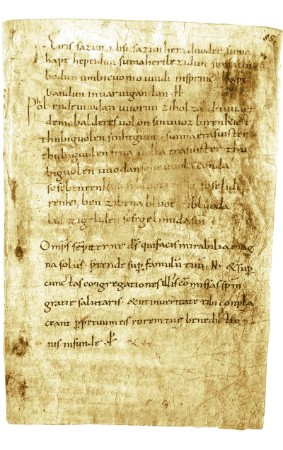 85
Eiris sazun idisi sazun heraduoder suma
hapt heptidun sumaherilezidun sumaclu
bodun umbicuonio uuidi insprinc hapt
bandun inuar uigandun· H·
Phol endeuuodan uuorun ziholza du uuart
demobalderes uolon sinuuoz birenkict
thubiguolen sinhtgunt · sunnaerasuister
thubiguolen friia uolla erasuister thu
biguolen uuodan sohe uuola conda
sosebenrenki sosebluotrenki soselidi
renki ben zibena bluot zibluoda
lid zigeliden sosegelimida sin·
Omps sempiterne ds quifacis mirabilia mag
na solus ptende sup famulū tuū ·N· & sup
cunctas congregationes illis cōmissas spm
gratie salutaris & ut inueritate tibi compla
ceant ppetuum eis rorem tuę benedictio
nis infunde p